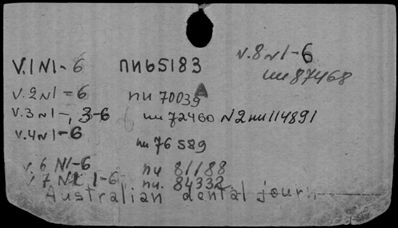 V.1 N1-6 пи65183
V.8 N1-6
пи87468
V.2 N1-6 пи 70039
A
V.3 N1-, 3-6 пи 72460 N2 пи114891
V.4 N1-6
пи 76589
V. 6 N1-6 пи 81188
V. 7 N1-6 пи. 84332
Australian dental journ